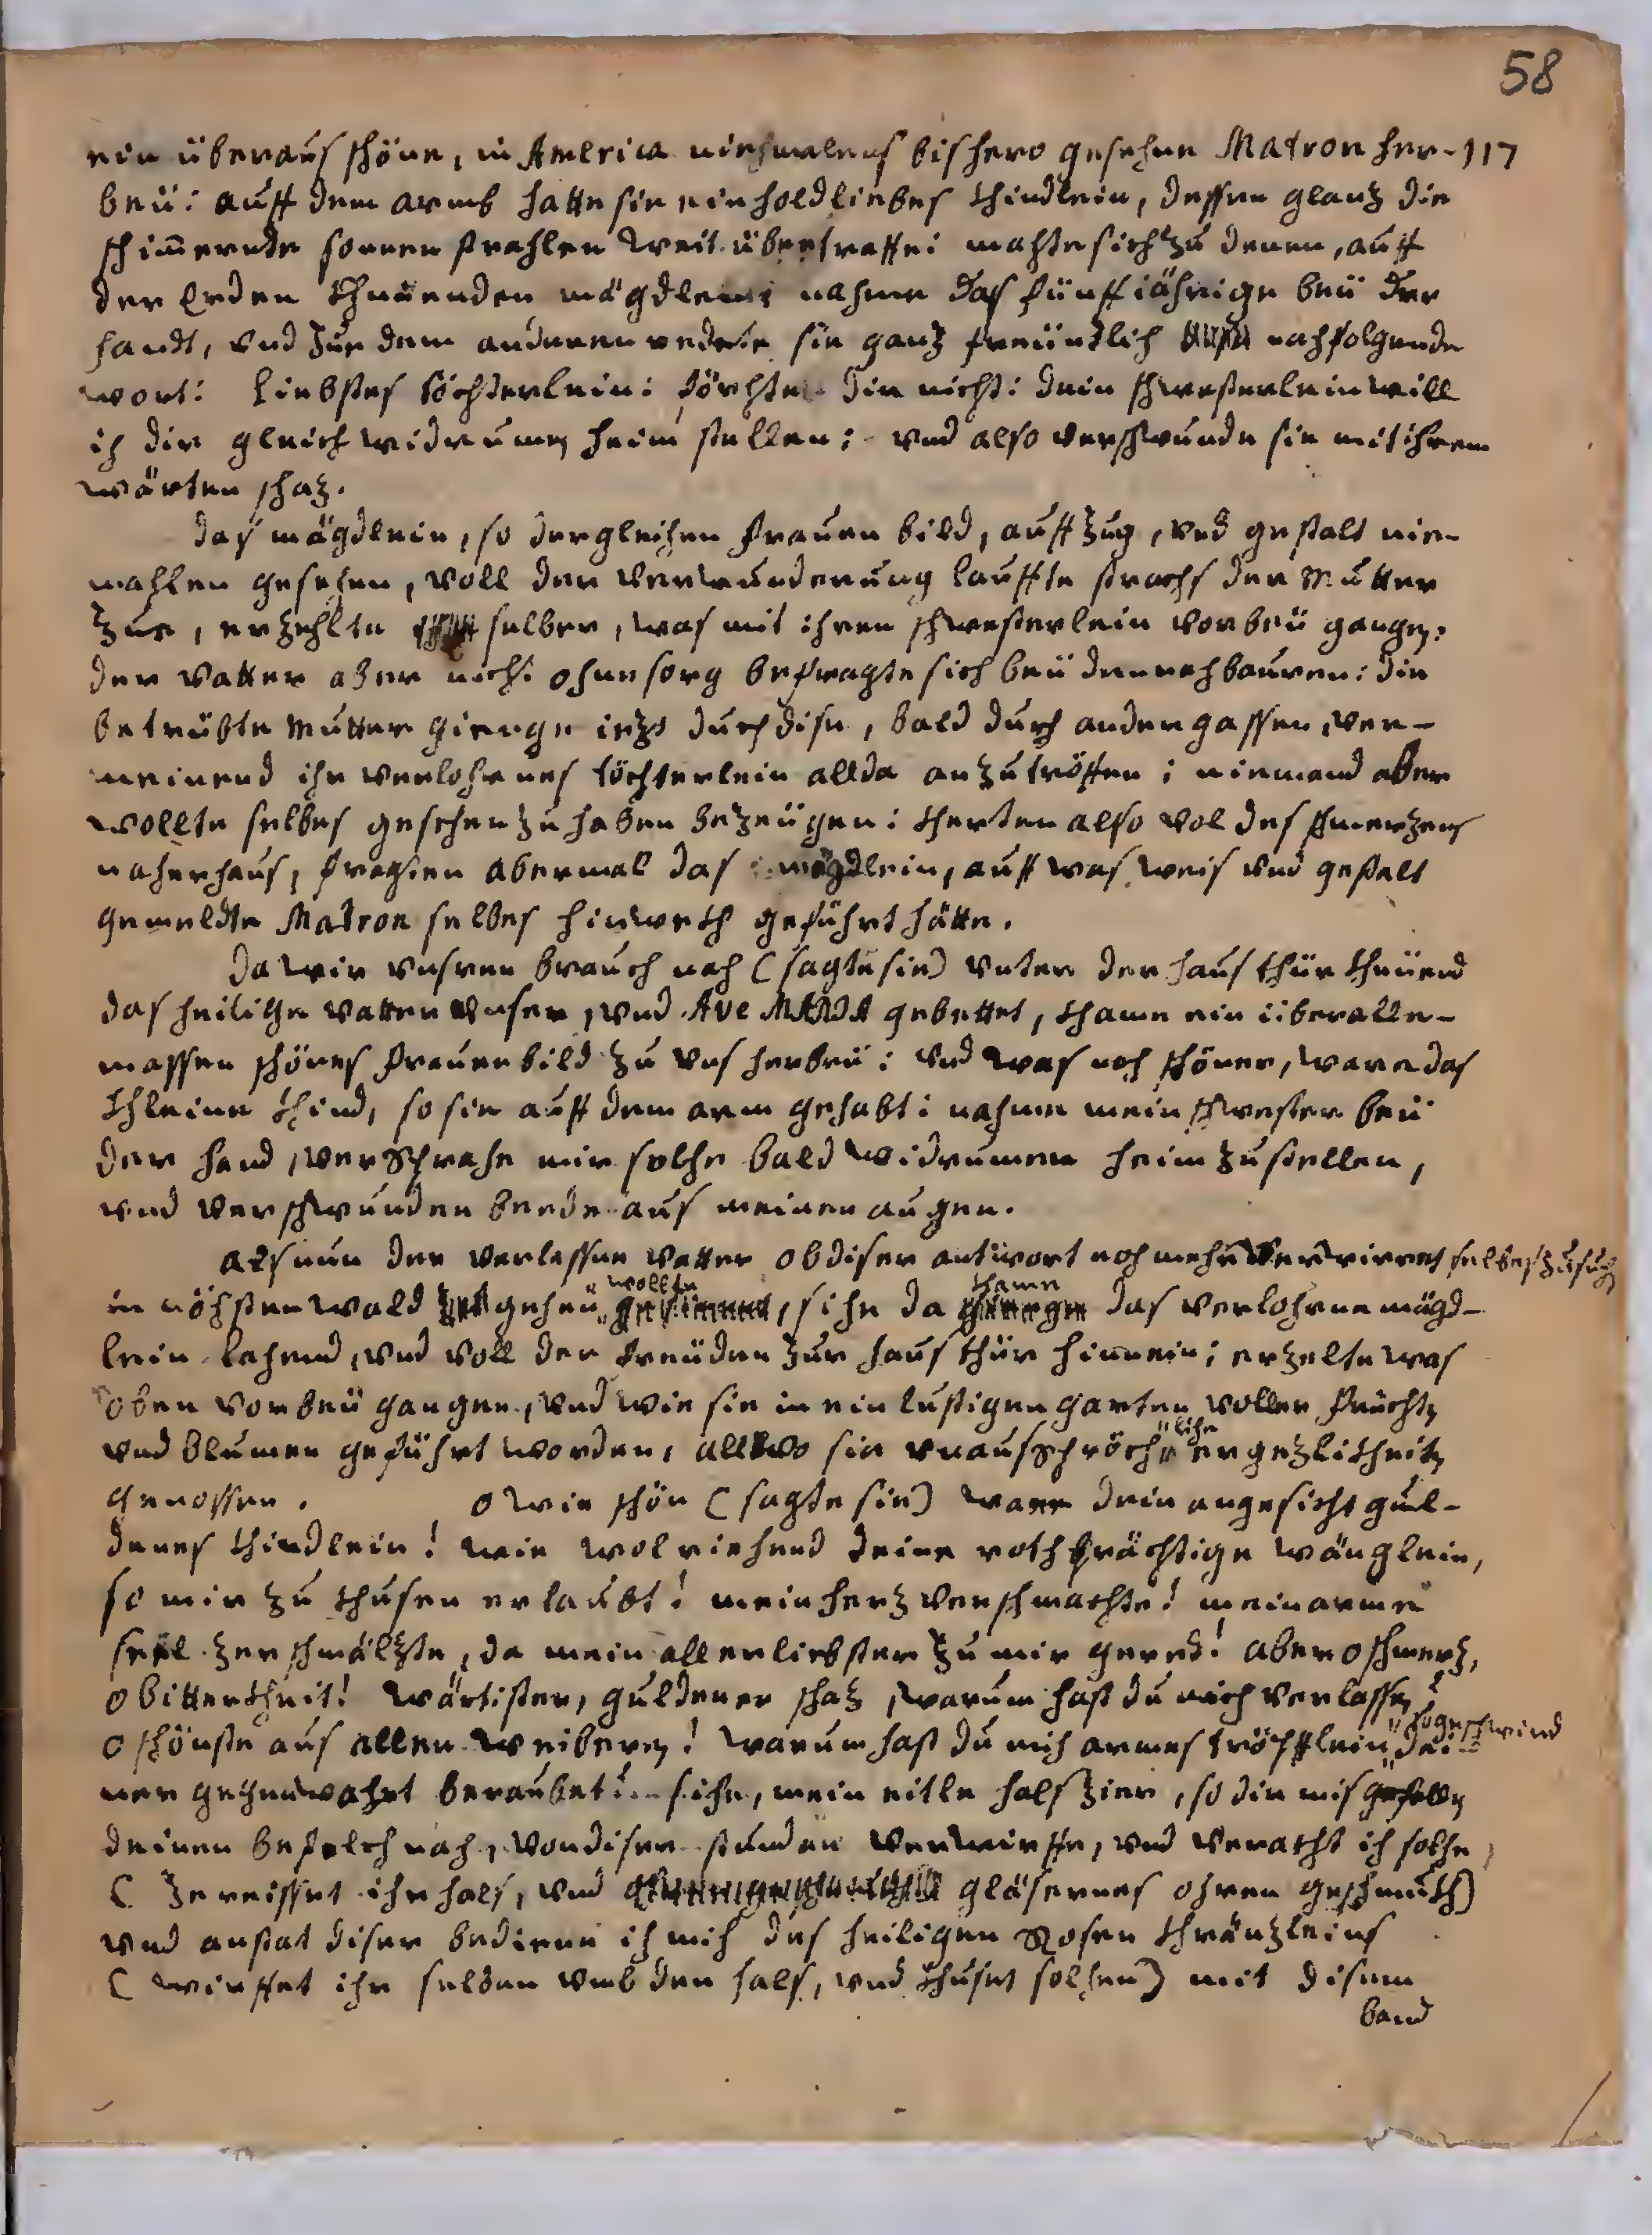 58
ein überaus schöne, in America niehmalens bishero gesehne Matron her- 117
beÿ: auff dem armb hatte sie ein holdliebes khindlein, dessen glantz die
schim̄ernde sonnen strahlen weit übertraffe: machte sich zu denen, auff
der Erden khnüenden mägdlein: nahme das fünffjährige beÿ der
handt, vnd zue dem anderen redete sie gantz freündtlich nachfolgende
wort: liebstes töchterlein: förchte dir nicht: dein schwesterlein will
ich dir gleich widrumb heim stellen: vnd also verschwunde sie mit ihrem
wärten schaz.
das mägdlein, so dergleichen frauen bild, auffzug, vnd gestalt nie-
mahlen gesehen, voll der verwunderung lauffte strachs der Mutter
zue, erzehlte selber, was mit ihren schwesterlein vorbeÿ gangen:
der vatter aber nicht ohne sorg befragte sich beÿ den nachbauren: die
betrübte Mutter gienge iezt durch dise, bald durch ander gassen, ver-
meinend ihr verlohrnes töchterlein allda anzutröffen; niemand aber
wollte selbes gesehen zu haben bezeügen: kherten also vol des schmerzens
nacher haus, fragten abermal das mägdlein, auff was weis vnd gestalt
gemeldte Matron selbes hinwekh geführt hätte.
Da wir vnsren brauch nach (sagte sie) vnter der haus thür khnüend
das heilige vatter vnser, vnd Ave MARIA gebettet, khame ein überalle-
massen schönes frauenbild zu vns herbeÿ: vnd was noch schöner, ware das
khleine khind, so sie auff dem arm gehabt: nahme mein schwester beÿ
der hand, versprache mir solche bald widrumen heim zu stellen,
vnd verschwunden beede aus meinen augen.
Als nun der verlassne vatter ob diser antwort noch mehr verwirret selbes zu suchen
in nöchsten wald gehen wollte, sihe da khame das verlohrne mägd-
lein lachend, vnd voll der freüden zur haus thür hinnein; erzelte was
oben vorbeÿ gangen, vnd wie sie in ein lustigen garten voller früchten
vnd blumen geführt worden, allwo sie vnausspröchliche ergezlikheiten
genossen. O wie schön (sagte sie) ware dein angesicht gul-
denes khindlein! wie wolriechend deine rothprächtige wänglein,
so mir zu khusen erlaubt! mein herz verschmachte! mein arme
seel zerschmälzte, da mein allerliebster zu mir geredt! aber o schmerz,
o bitterkheit! wärtister, guldener schaz, warum hast du mich verlassen?
o schönste aus allen weiberen! warum hast du mich armes tröpfflein so geschwind dei-
ner gegenwahrt beraubet? sihe, mein eitle halszier, so dir misgefallen
deinen befelch nach, von diser stunden verwirffe, vnd veracht ich solche,
( zereisset ihr hals, vnd gläsernes ohren geschmukh)
vnd anstat diser bediene ich mich des heiligen Rosen khränzleins
( wirffet ihr selben vmb den hals, vnd khuset solchen) mit disem
band